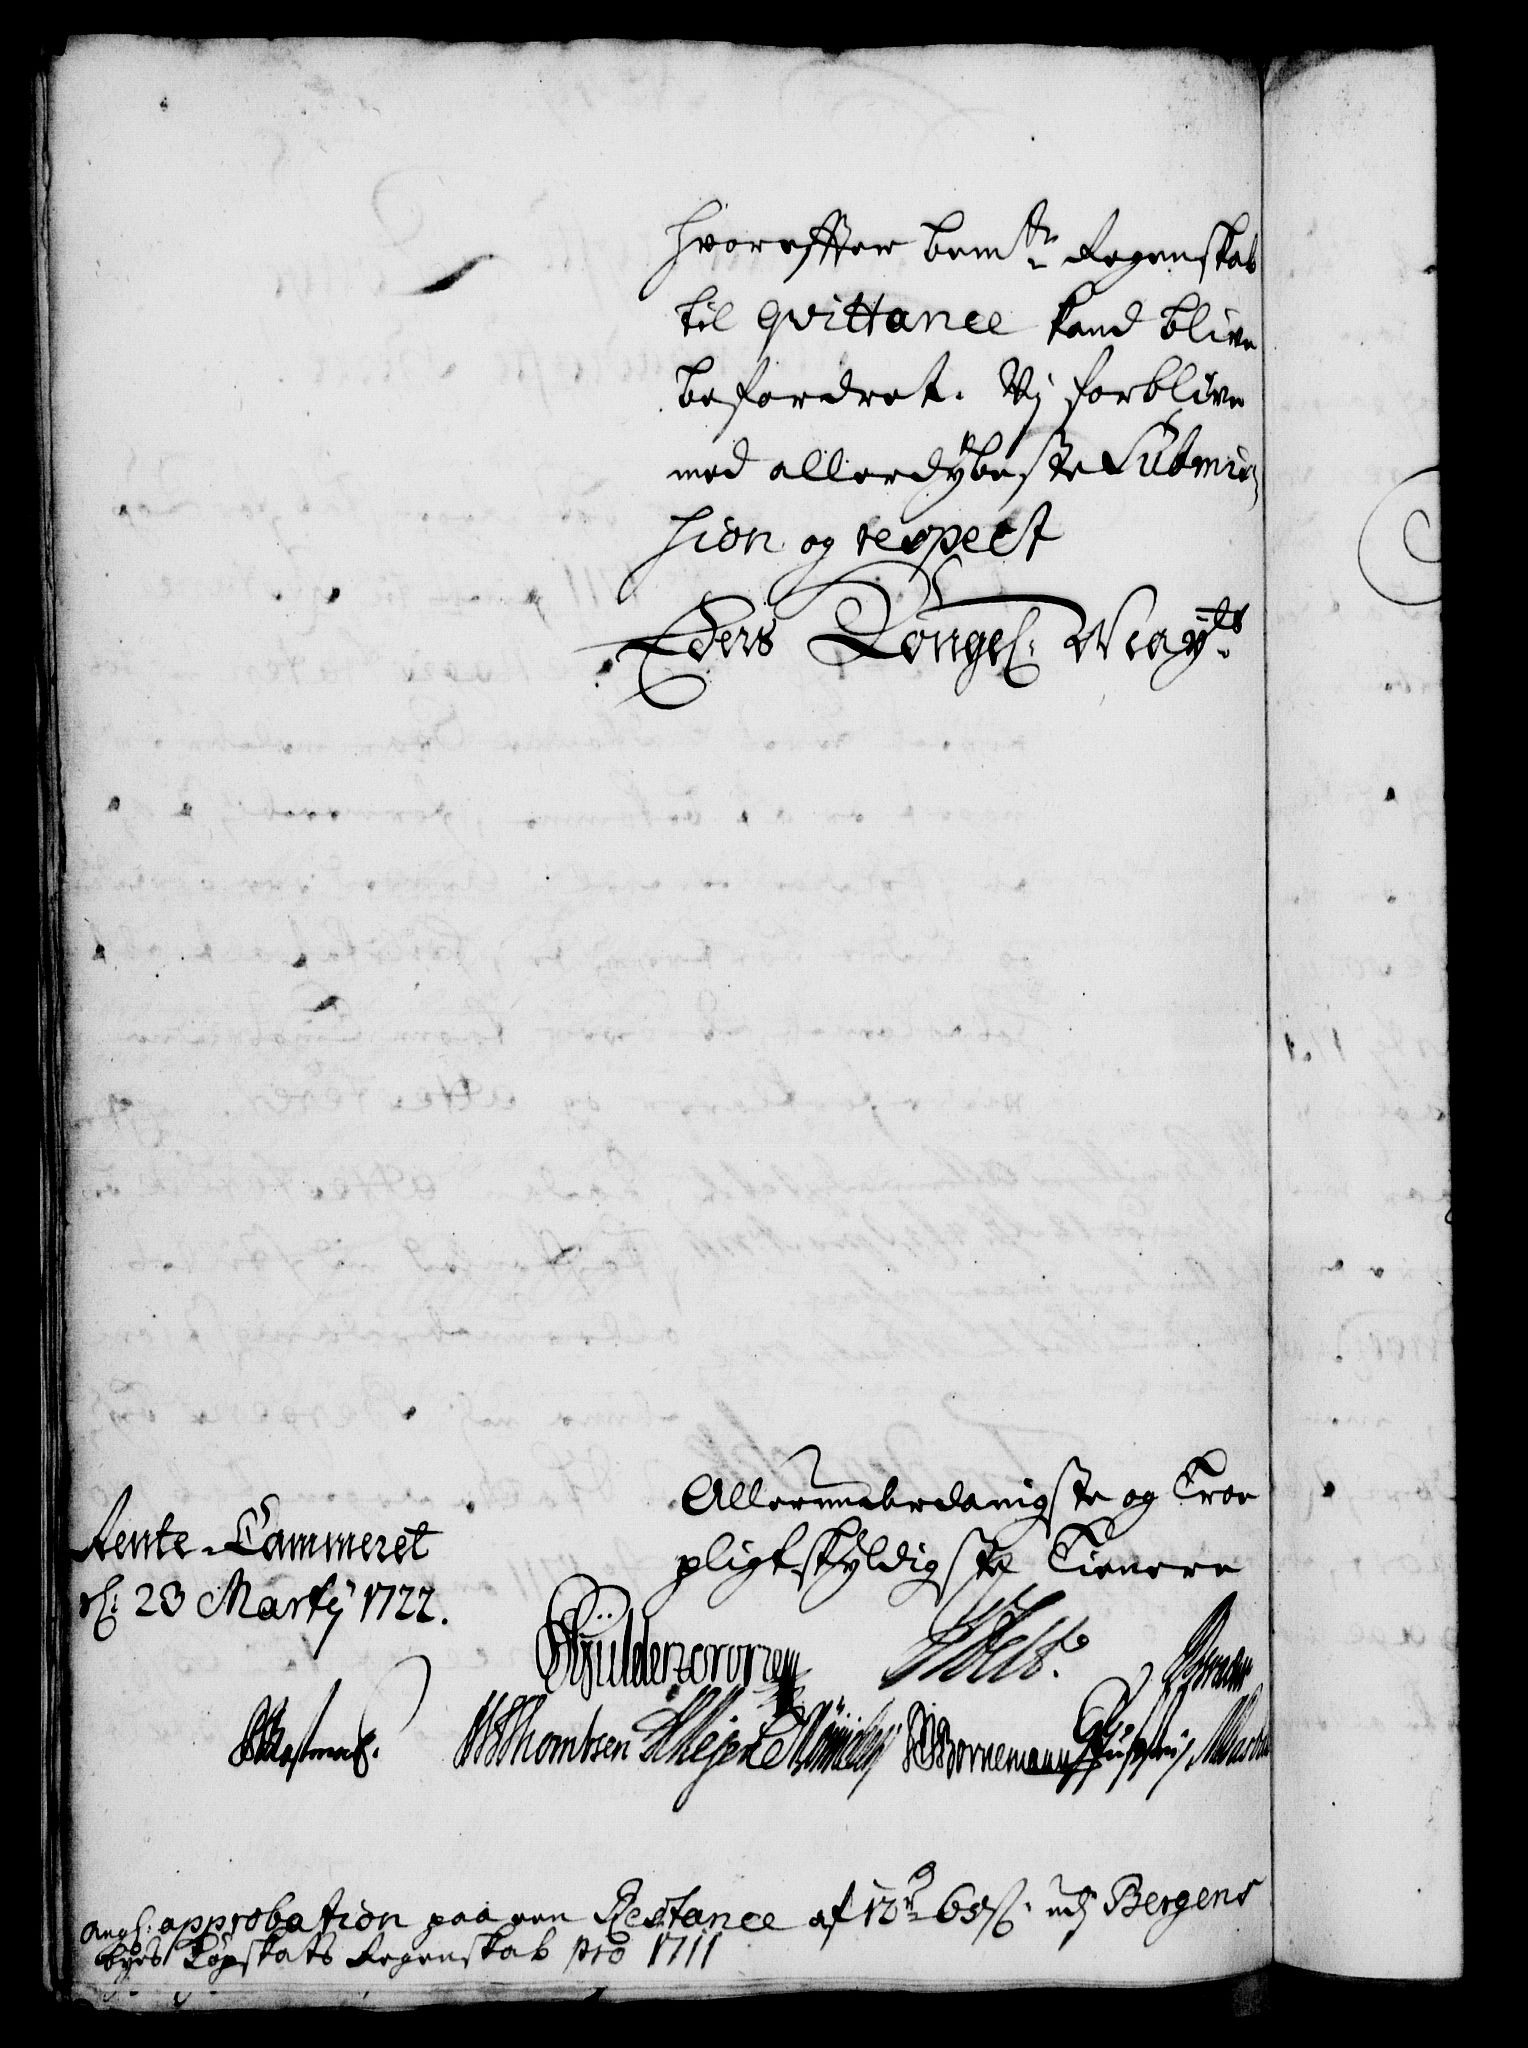 hvorefter bemte Regenskab
til qvittance kand blive
befordret. Vj forblive
med allerdybeste Submis-
sion og respect
Eders Kongel: Mayts
Allerunderdanigste og Troe
pligtskyldigste Tienere
Rente-Cammeret
d: 23 Martij 1722.
Güldencronen Holst.
WThombsen Bornemann
angl: approbation paa een Restance af 12 rd 65 s. udj Bergens
byes Kopskats Regenskab pro 1711